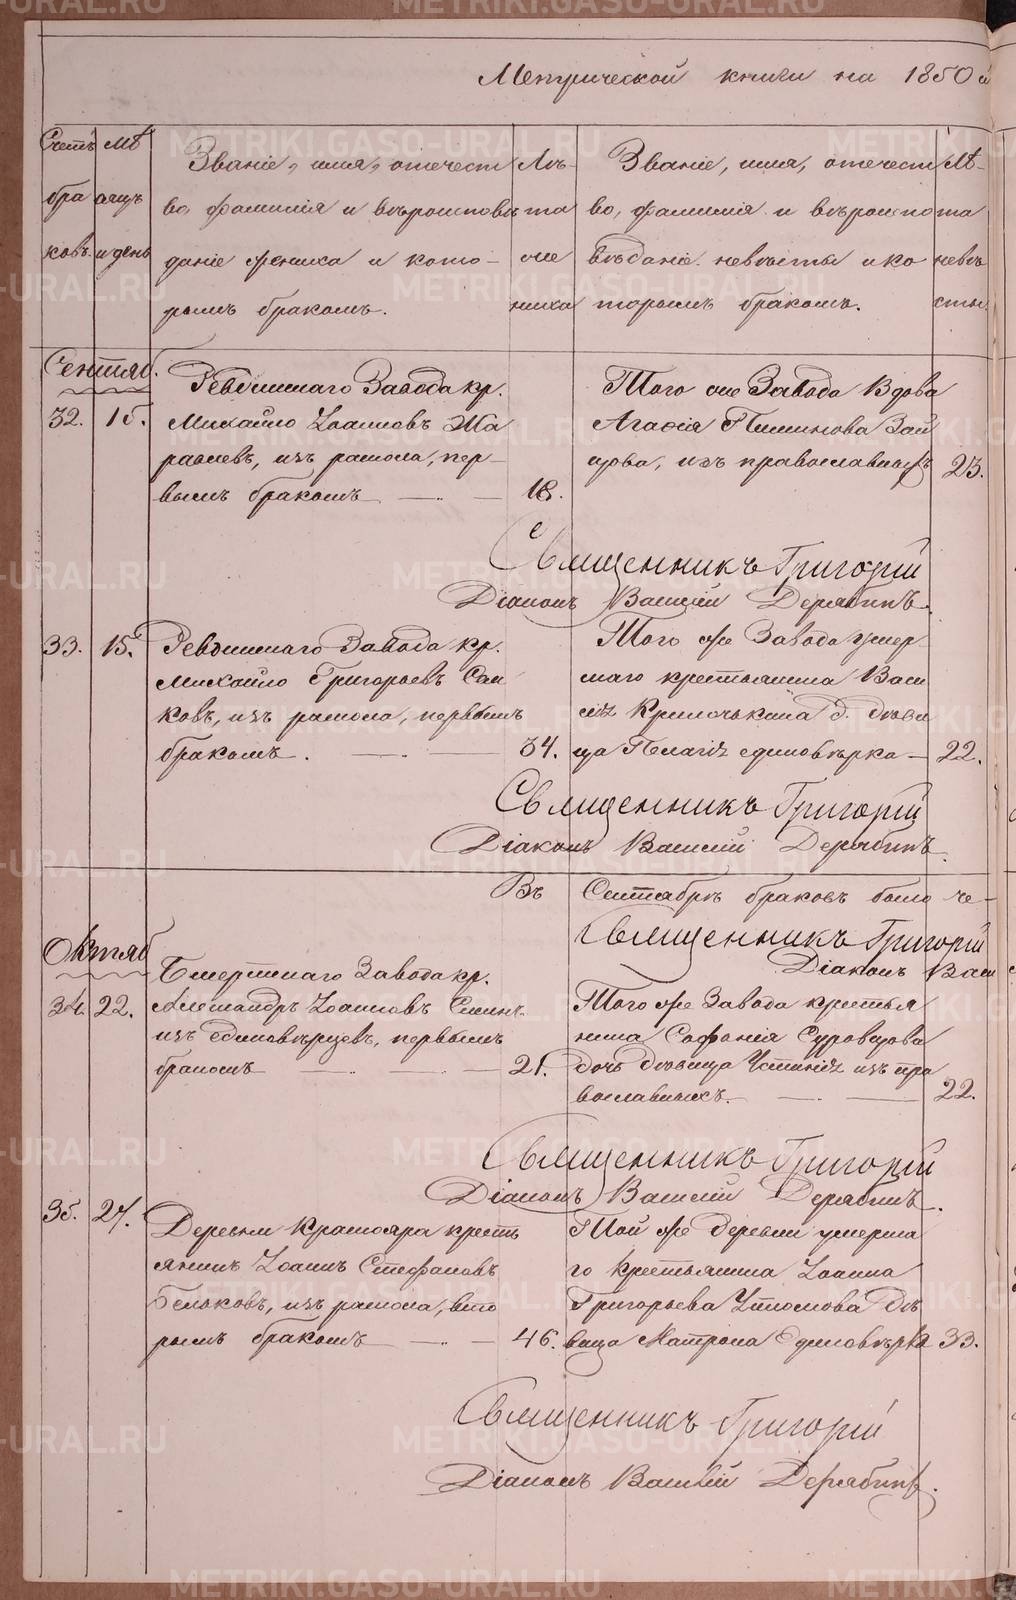 Метрической книги на 1850 й
Счетъ бра ковъ.
Мѣ сяцъ и день
Званіе, имя, отечест
во, фамилія и вѣроисповѣ
даніе жениха и кото-
рымъ бракомъ.
Лѣ-
та
же
ниха
Званіе, имя, отечест
во, фамилія и вѣроиспо
вѣданіе невѣсты и ко
торымъ бракомъ.
Лѣ-
та
невѣ
сты.
Сентяб.
32. 15. Ревдинскаго Завода кр.
Михайло Іоанновъ Жа
равлевъ, изъ раскола, пер-
вымъ бракомъ 18.
Того же Завода Вдова
Агафія Пиминова Зай
цова, изъ православныхъ 23.
Священникъ Григорій
Діаконъ Василій Дерябинъ.
33. 15. Ревдинскаго Завода кр.
Михайло Григорьевъ Сал
ковъ, изъ раскола, первымъ
бракомъ. 34.
Того же Завода умер-
шаго крестьянина Васи
лія д. дѣви
ца Пелагія единовѣрка 22.
Священникъ Григорій
Діаконъ Василій Дерябинъ.
Въ Сентябрѣ браковъ было че-
Священникъ Григорій
Діаконъ Васи
Октяб
34. 22. Бисертскаго Завода кр.
Александръ Іоанновъ
изъ единовѣрцевъ, первымъ
бракомъ 21.
Того же Завода крестья
нина Софонія Суровцова
дочь дѣвица Устинія изъ пра
вославныхъ. 22.
Священникъ Григорій
Діаконъ Василій Дерябинъ.
35. 27. Деревни Краснояра кресть
янинъ Іоаннъ Стефановъ
Бельковъ, изъ раскола, вто
рымъ бракомъ 46.
Той же деревни умерша
го крестьянина Іоанна
Григорьева Дѣ
вица Матрона Единовѣрка 33.
Священникъ Григорій
Діаконъ Василій Дерябинъ.
METRIKI.GASO-URAL.RU